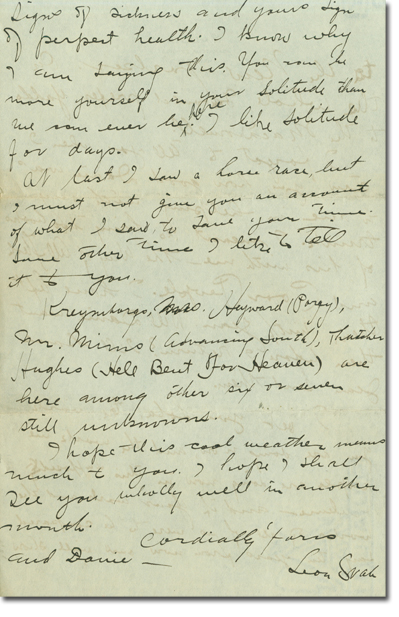 sign of sickness and yours sign
of perfect health. I know why
I am saying this. You can be
more yourself in your solitude than
we can ever be here. I like solitude
for days.
At last I saw a horse race, but
I must not give you an account
of what I saw, to save your time.
Some other time I like to tell
it to you.
Kreymborgs, Mrs. Hayward (Porgy),
Mr. Mims (Advancing South), Thatcher
Hughes (Hell Bent For Heaven) are
here among other six or seven
still unknowns.
I hope this cool weather means
much to you. I hope I shall
see you wholly well in another
month.
Cordially yours
and Davie —
Leon Srab